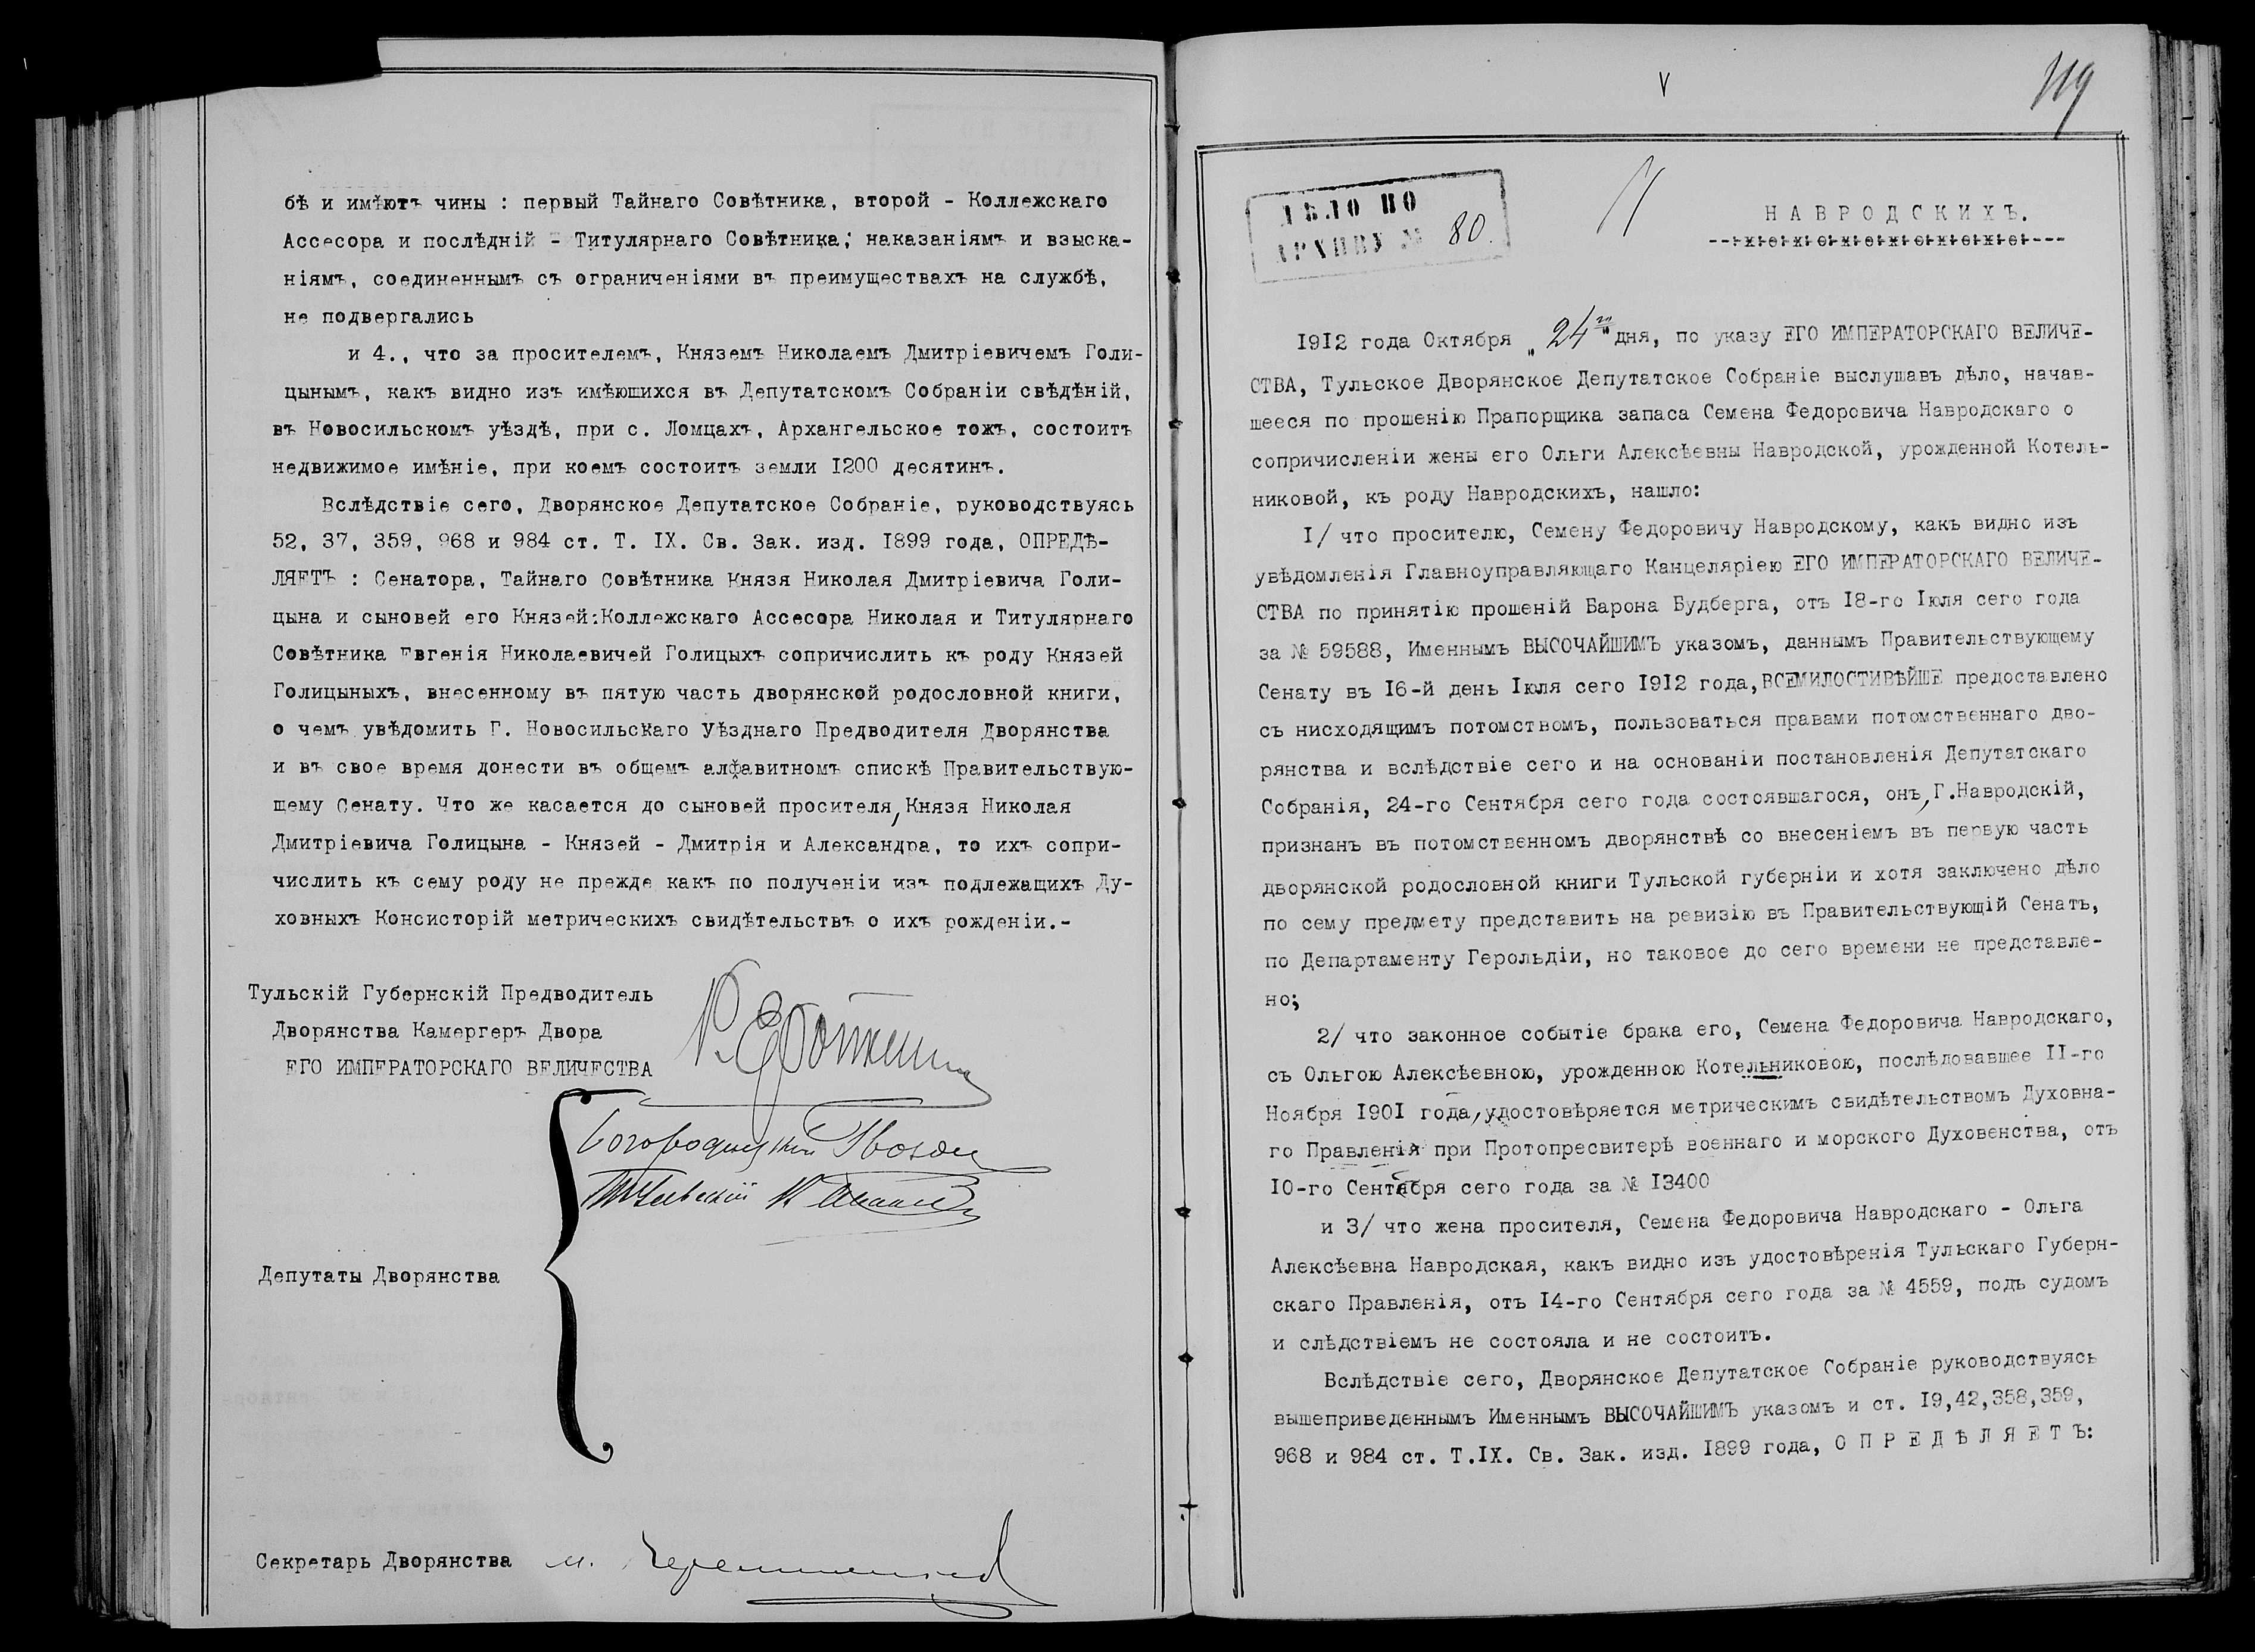 бѣ и имѣютъ чины : первый Тайнаго Совѣтника, второй - Коллежскаго
Ассесора и послѣдній - Титулярнаго Совѣтника; наказаніямъ и взыска-
ніямъ, соединеннымъ съ ограниченіями въ преимуществахъ на службѣ,
не подвергались
и 4., что за просителемъ, Княземъ Николаемъ Дмитріевичемъ Голи-
цынымъ, какъ видно изъ имѣющихся въ Депутатскомъ Собраніи свѣдѣній,
въ Новосильскомъ уѣздѣ, при с. Ломцахъ, Архангельское тожъ, состоитъ
недвижимое имѣніе, при коемъ состоитъ земли 1200 десятинъ.
Вслѣдствіе сего, Дворянское Депутатское Собраніе, руководствуясь
52, 37, 359, 968 и 984 ст. Т. IX. Св. Зак. изд. 1899 года, ОПРЕДѢ-
ЛЯЕТЪ : Сенатора, Тайнаго Совѣтника Князя Николая Дмитріевича Голи-
цына и сыновей его Князей:Коллежскаго Ассесора Николая и Титулярнаго
Совѣтника Евгенія Николаевичей Голицыхъ сопричислить къ роду Князей
Голицыныхъ, внесенному въ пятую часть дворянской родословной книги,
о чемъ увѣдомить Г. Новосильскаго Уѣзднаго Предводителя Дворянства
и въ свое время донести въ общемъ алфавитномъ спискѣ Правительствую-
щему Сенату. Что же касается до сыновей просителя, Князя Николая
Дмитріевича Голицына - Князей - Дмитрія и Александра, то ихъ сопри-
числить къ сему роду не прежде какъ по полученіи изъ подлежащихъ Ду-
ховныхъ Консисторій метрическихъ свидѣтельствъ о ихъ рожденіи.-
Тульскій Губернскій Предводитель
Дворянства Камергеръ Двора
ЕГО ИМПЕРАТОРСКАГО ВЕЛИЧЕСТВА
Р. Еропкинъ
Богородицкій
Депутаты Дворянства
Секретарь Дворянства М.
119
ДѢЛО ПО
АРХИВУ № 80.
НАВРОДСКИХЪ.
1912 года Октября „24го" дня, по указу ЕГО ИМПЕРАТОРСКАГО ВЕЛИЧЕ-
СТВА, Тульское Дворянское Депутатское Собраніе выслушавъ дѣло, начав-
шееся по прошенію Прапорщика запаса Семена Федоровича Навродскаго о
сопричисленіи жены его Ольги Алексѣевны Навродской, урожденной Котель-
никовой, къ роду Навродскихъ, нашло:
1/ что просителю, Семену Федоровичу Навродскому, какъ видно изъ
увѣдомленія Главноуправляющаго Канцеляріею ЕГО ИМПЕРАТОРСКАГО ВЕЛИЧЕ-
СТВА по принятію прошеній Барона Будберга, отъ 18-го Іюля сего года
за № 59588, Именнымъ ВЫСОЧАЙШИМЪ указомъ, даннымъ Правительствующему
Сенату въ 16-й день Іюля сего 1912 года,ВСЕМИЛОСТИВѢЙШЕ предоставлено
съ нисходящимъ потомствомъ, пользоваться правами потомственнаго дво-
рянства и вслѣдствіе сего и на основаніи постановленія Депутатскаго
Собранія, 24-го Сентября сего года состоявшагося, онъ, Г.Навродскій,
признанъ въ потомственномъ дворянствѣ со внесеніемъ въ первую часть
дворянской родословной книги Тульской губерніи и хотя заключено дѣло
по сему предмету представить на ревизію въ Правительствующій Сенатъ,
по Департаменту Герольдіи, но таковое до сего времени не представле-
но;
2/ что законное событіе брака его, Семена Федоровича Навродскаго,
съ Ольгою Алексѣевною, урожденною Котельниковою, послѣдовавшее 11-го
Ноября 1901 года, удостовѣряется метрическимъ свидѣтельствомъ Духовна-
го Правленія при Протопресвитерѣ военнаго и морского Духовенства, отъ
10-го Сентября сего года за № 13400
и 3/ что жена просителя, Семена Федоровича Навродскаго - Ольга
Алексѣевна Навродская, какъ видно изъ удостовѣренія Тульскаго Губерн-
скаго Правленія, отъ 14-го Сентября сего года за № 4559, подъ судомъ
и слѣдствіемъ не состояла и не состоитъ.
Вслѣдствіе сего, Дворянское Депутатское Собраніе руководствуясь
вышеприведеннымъ Именнымъ ВЫСОЧАЙШИМЪ указомъ и ст. 19,42,358,359,
968 и 984 ст. Т.IX. Св. Зак. изд. 1899 года, О П Р Е Д Ѣ Л Я Е Т Ъ: